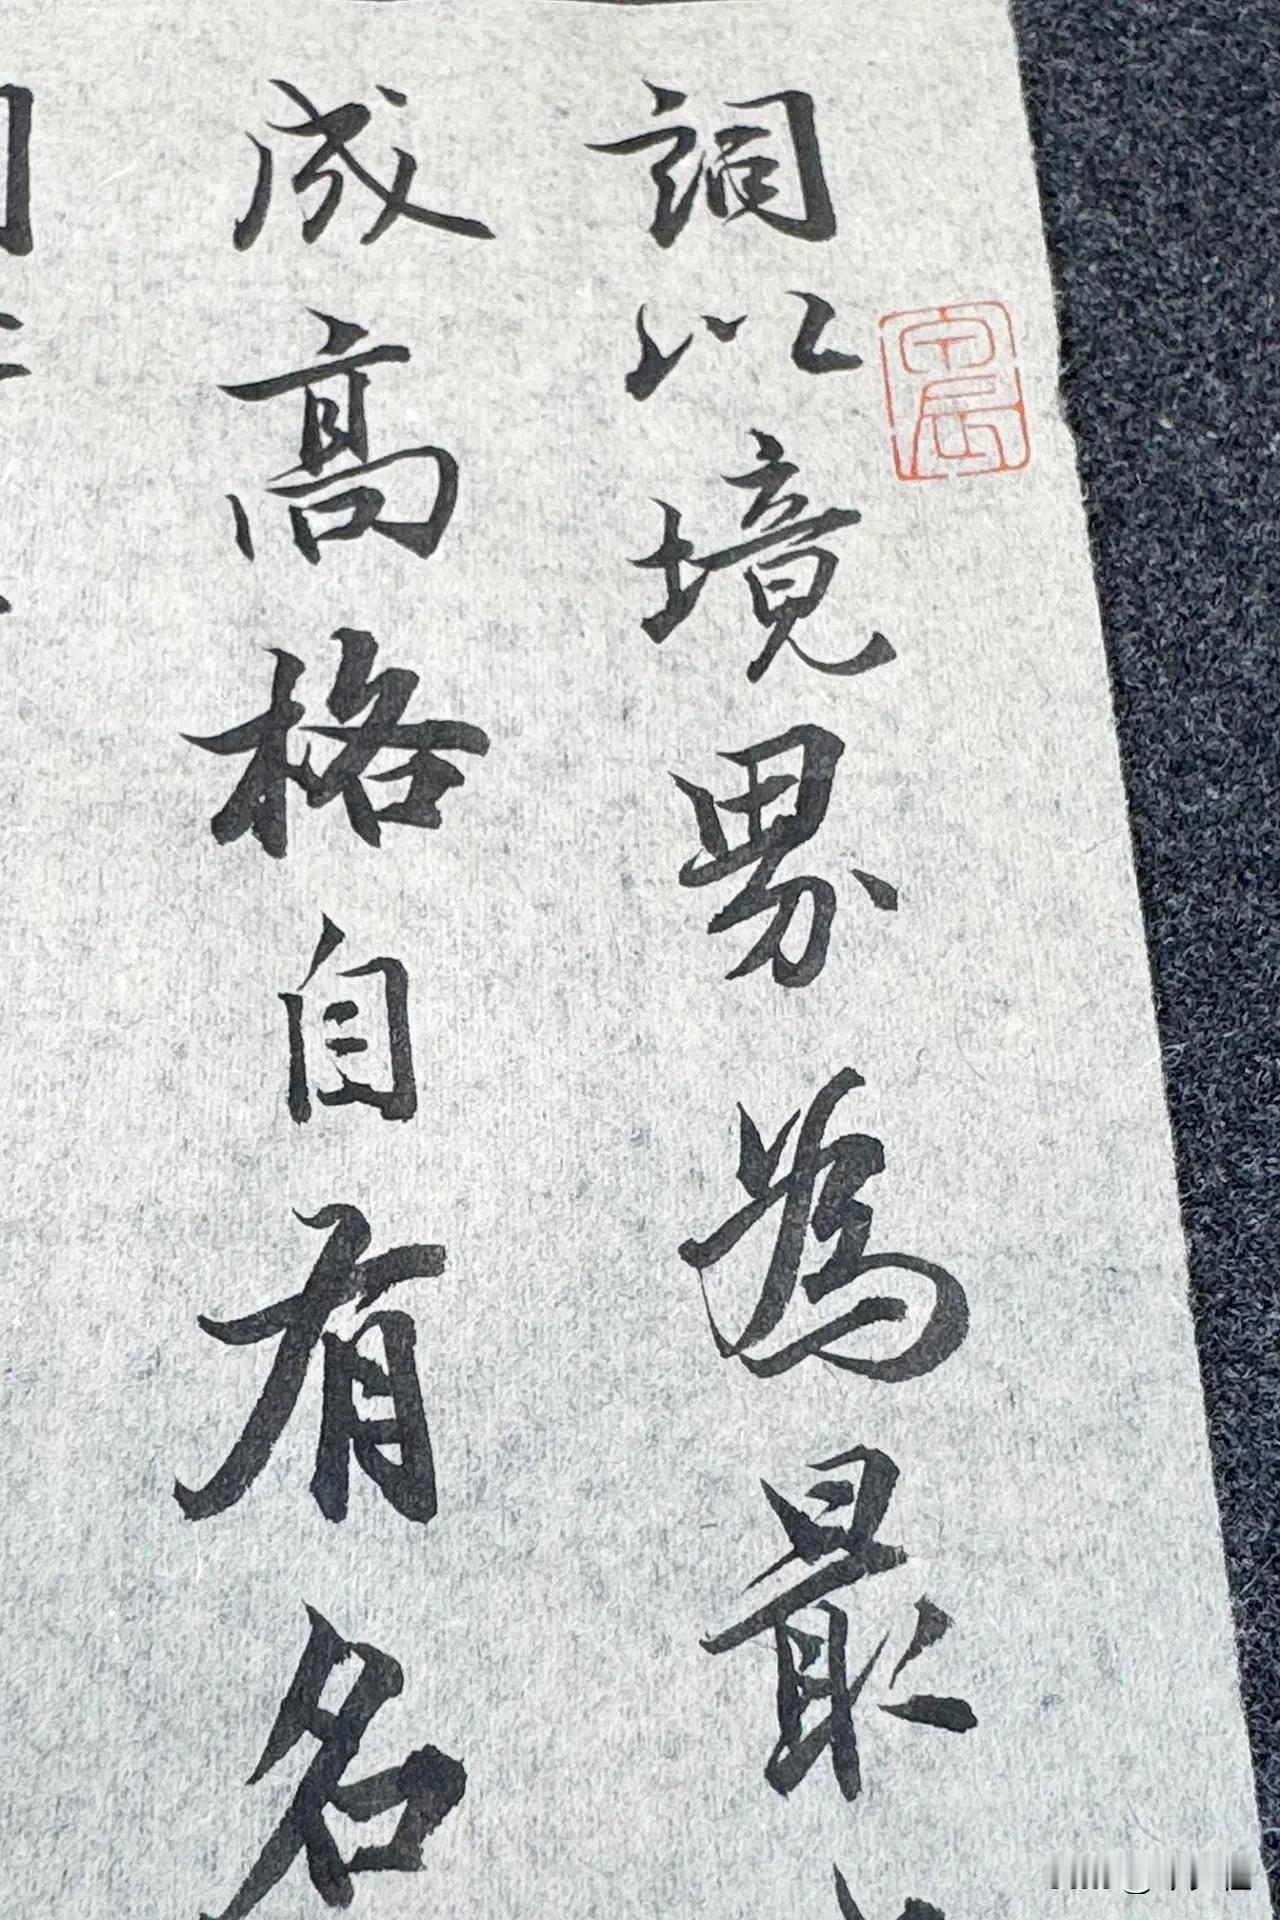 詞以境界為最
成高格自有名